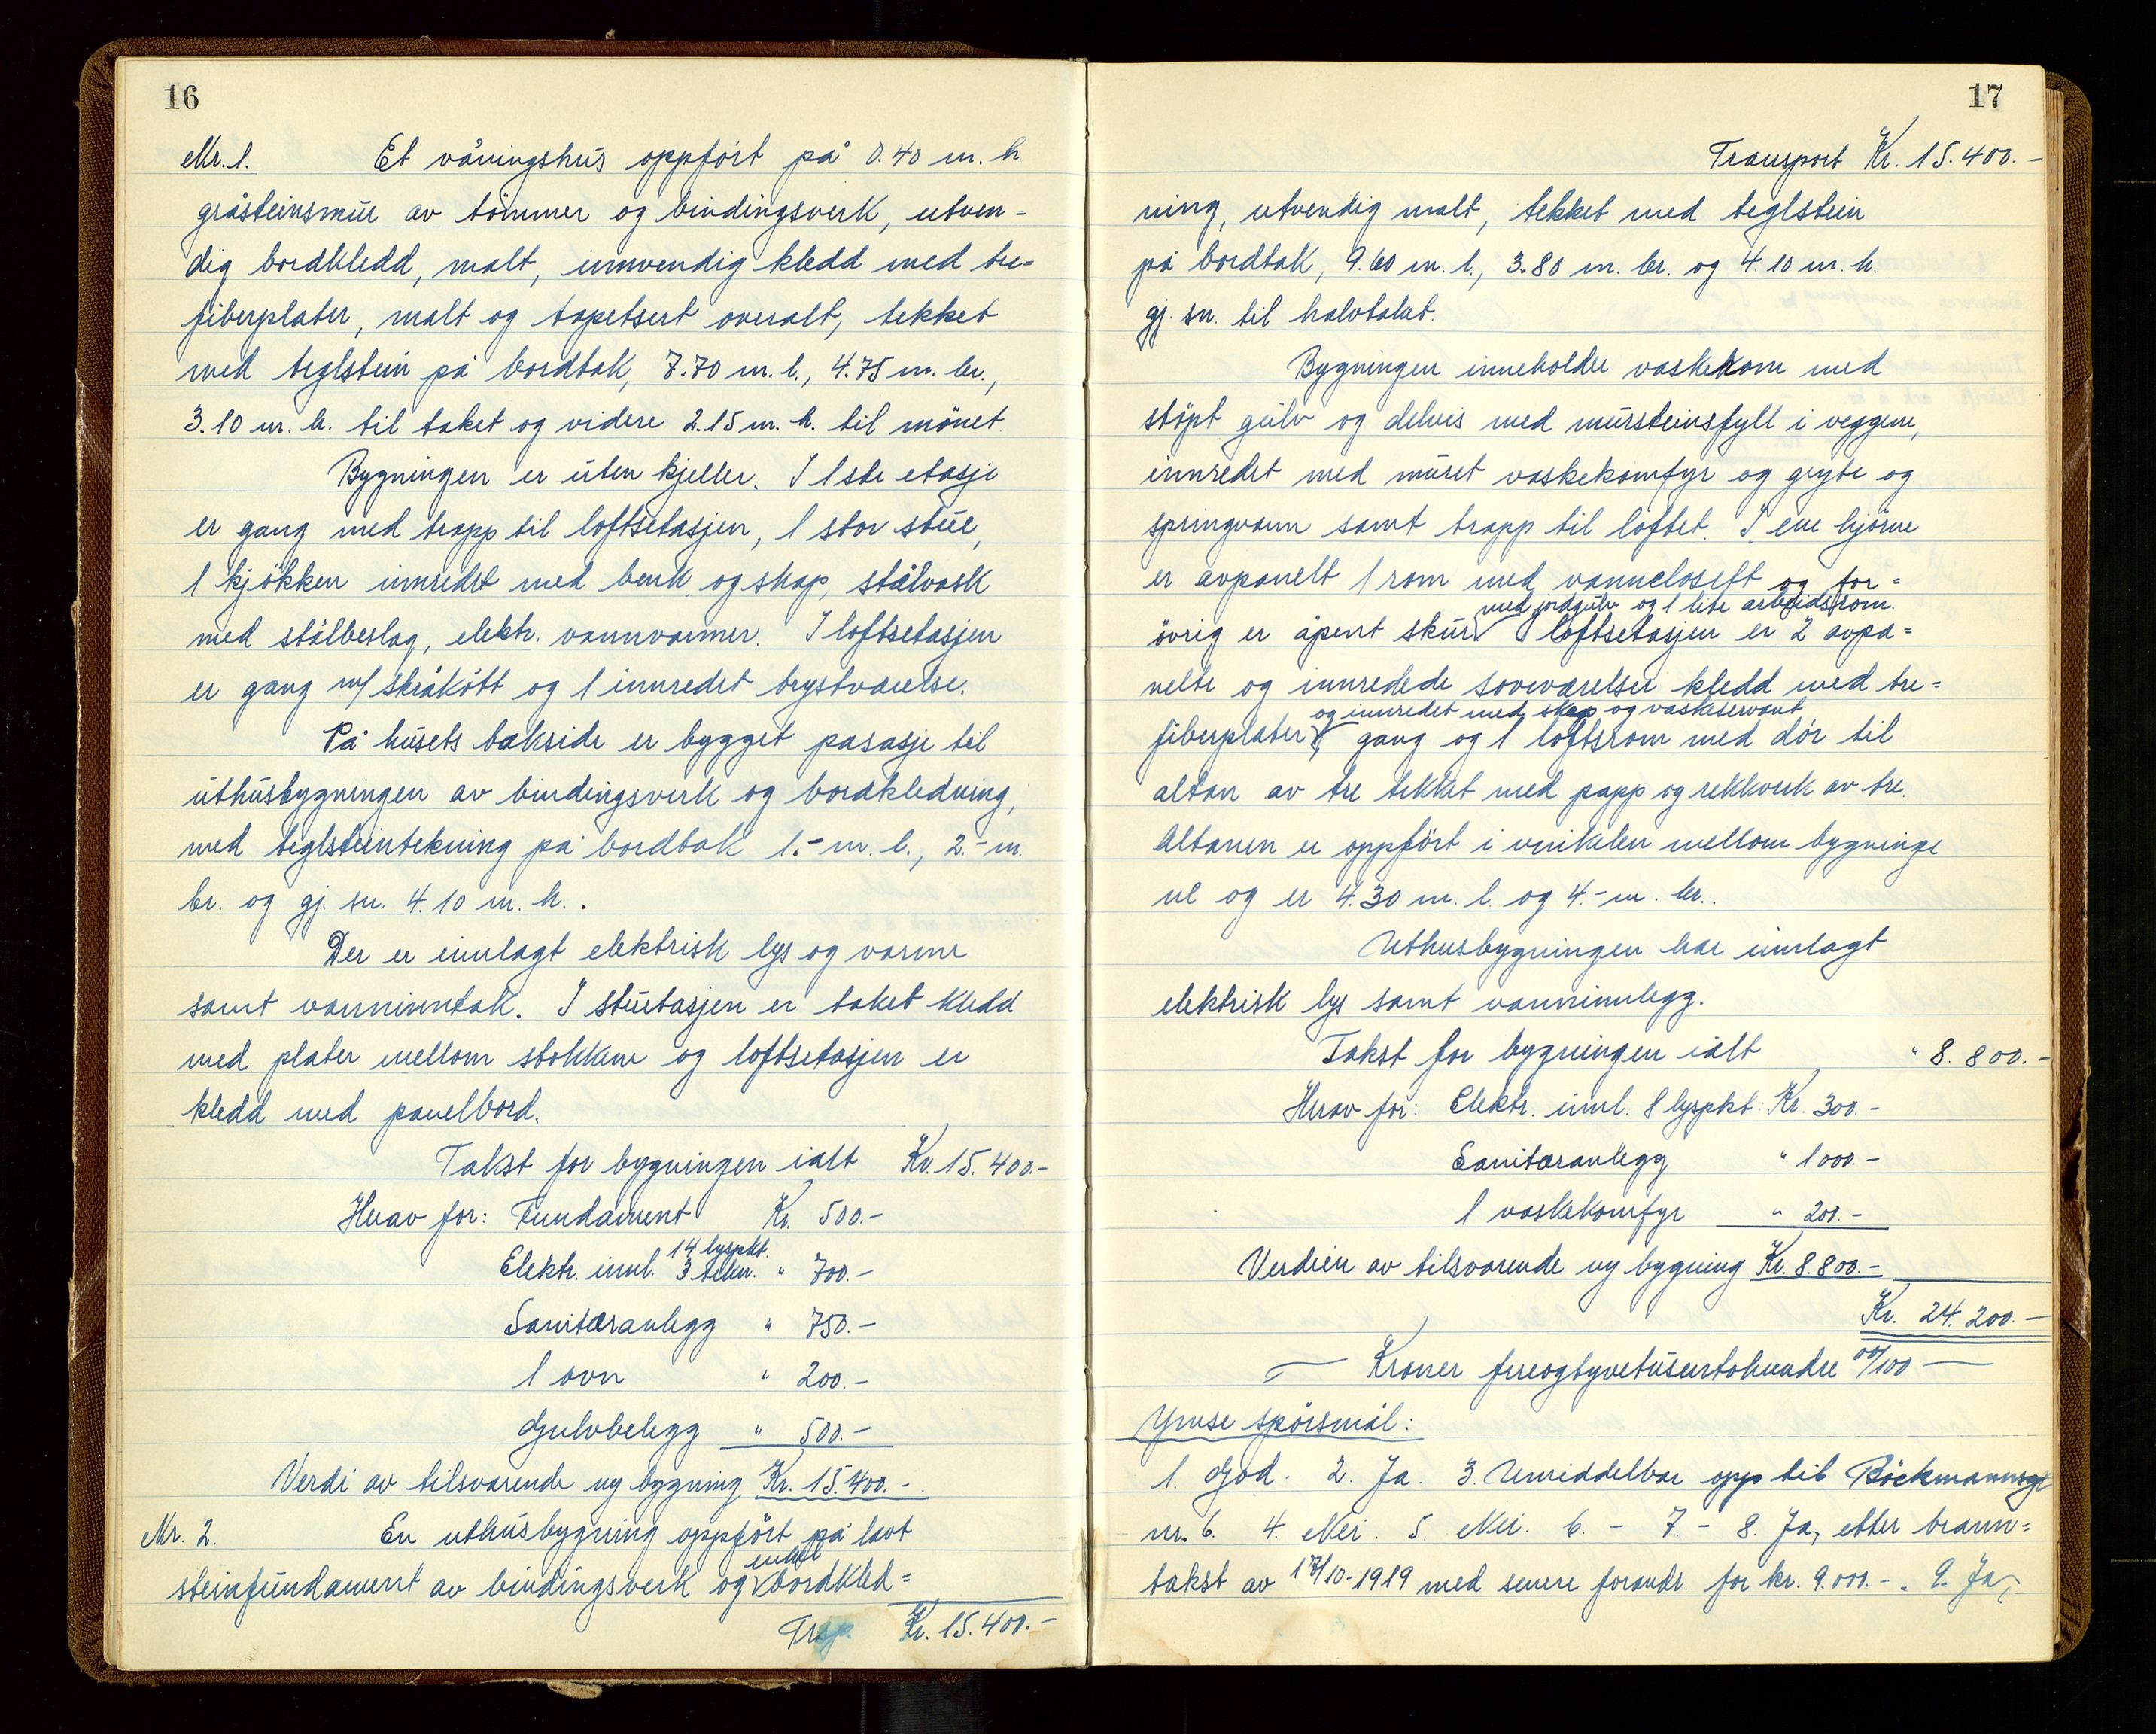 16
Nr. 1. Et våningshus oppført på 0.40 m. h.
gråsteinsmur av tømmer og bindingsverk, utven=
dig bordkledd, malt, innvendig kledd med tre=
fiberplater, malt og tapetsert overalt, tekket
med teglstein på bordtak, 7.70 m. l., 4.75 m. br.,
3.10 m. h. til taket og videre 2.15 m. h. til mønet.
Bygningen er uten kjeller. I 1ste etasje
er gang med trapp til loftsetasjen, 1 stor stue,
1 kjøkken innredet med benk og skap, stålvask
med stålbeslag, elektr. vannvarmer. I loftsetasjen
er gang m/ skråkott og 1 innredet brystværelse.
På husets bakside er bygget pasasje til
uthusbygningen av bindingsverk og bordkledning,
med teglsteintekning på bordtak 1.- m. l., 2.- m.
br. og gj. sn. 4.10 m. h..
Der er innlagt elektrisk lys og varme
samt vanninntak. I stuetasjen er taket kledd
med plater mellom stokkene og loftsetasjen er
kledd med panelbord.
Takst for bygningen ialt Kr. 15.400.-
Herav for: Fundament Kr. 500.-
14 lyspkt.
Elektr. innl. 3 tekn. " 700.-
Sanitæranlegg " 750.-
1 ovn " 200.-
Gulvbelegg " 500.-
Verdi av tilsvarende ny bygning Kr. 15.400.-.
Nr. 2. En uthusbygning oppført på lavt
enkel
steinfundament av bindingsverk og bordkled=
Trsp. Kr. 15.400.-
17
Transport Kr. 15.400.-
ning, utvendig malt, tekket med teglstein
på bordtak, 9.60 m. l., 3.80 m. br. og 4.10 m. h.
gj. sn. til halvtaket.
Bygningen inneholder vaskerom med
støpt gulv og delvis med mursteinsfyll i veggene,
innredet med muret vaskekomfyr og gryte og
springvann samt trapp til loftet. I ene hjørne
er avpanelt 1 rom med vannclosett og for=
med jordgulv og 1 lite arbeidsrom.
øvrig er åpent skur I loftsetasjen er 2 avpa=
nelte og innredede soveværelser kledd med tre=
og innredet med skap og vaskeservant
fiberplater, gang og 1 loftsrom med dør til
altan av tre tekket med papp og rekkverk av tre.
Altanen er oppført i vinkelen mellom bygninge
ne og er 4.30 m. l. og 4.- m. br..
Uthusbygningen har innlagt
elektrisk lys samt vanninnlegg.
Takst for bygningen ialt " 8.800.-
Herav for: Elektr. innl. 8 lyspkt: Kr. 300.-
Sanitæranlegg " 1000.-
1 vaskekomfyr " 200.-
Verdien av tilsvarende ny bygning Kr. 8.800.-
Kr. 24.200.-
Kroner fireogtyvetusentohundre 00/100
Ymse spørsmål:
1. God. 2. Ja. 3. Umiddelbar opp til Böckmannsgt
nr. 6. 4. Nei. 5. Nei. 6. - 7. - 8. Ja, etter brann=
takst av 17/10-1919 med senere forandr. for kr. 9.000.-. 9. Ja,